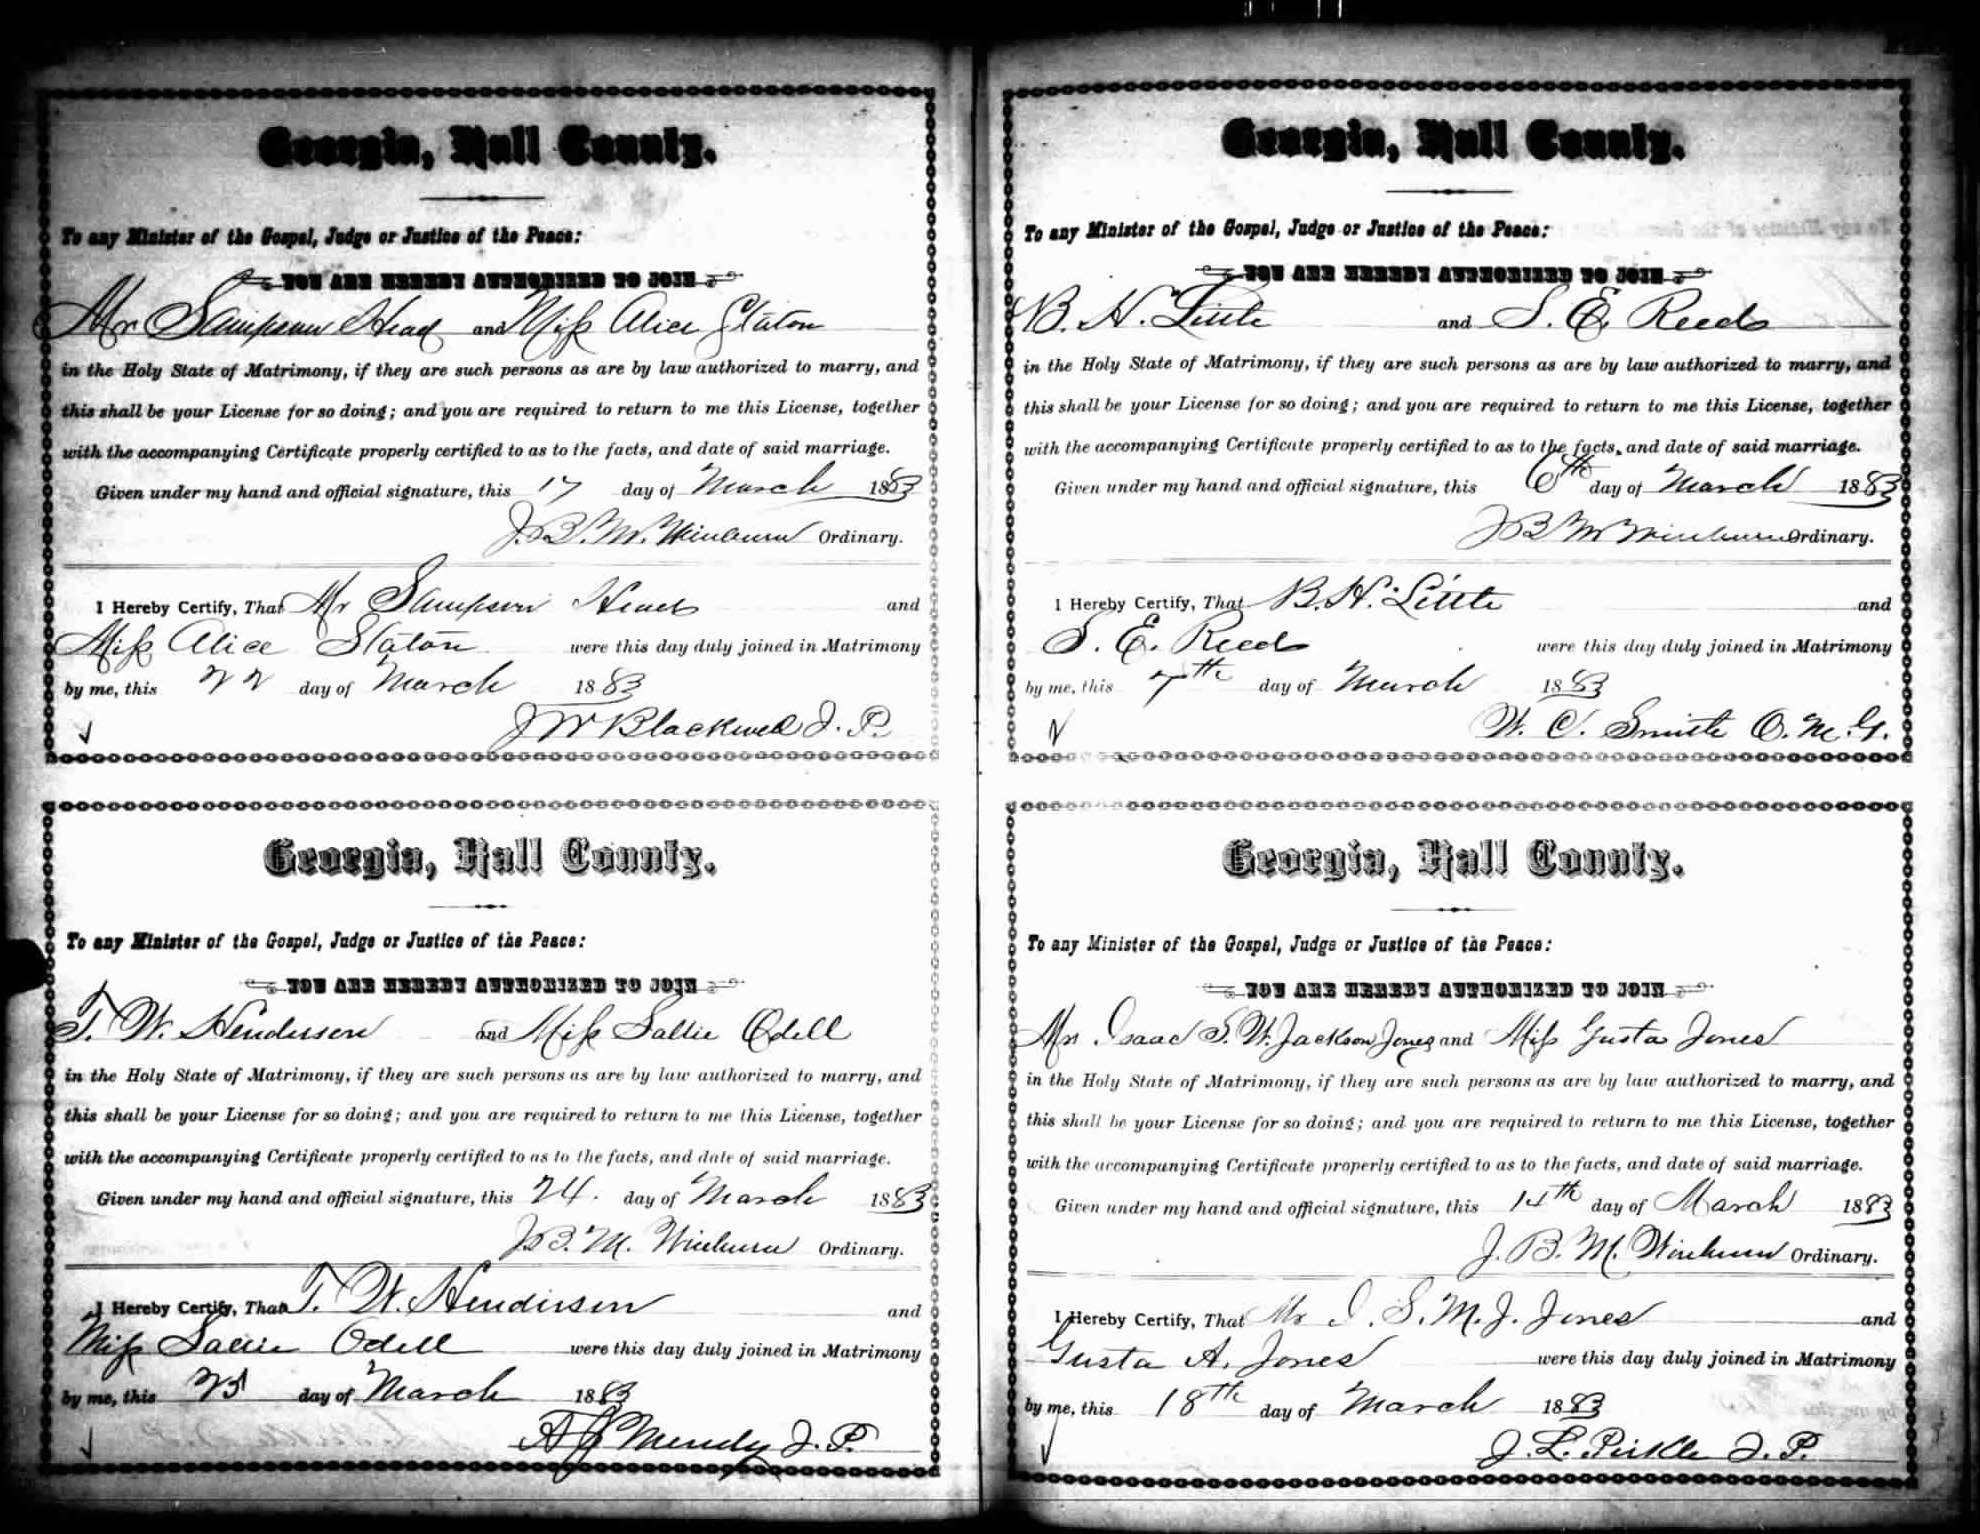 Georgia, Hall County.
To any Minister of the Gospel, Judge or Justice of the Peace:
YOU ARE HEREBY AUTHORIZED TO JOIN
Mr Sampson Head and Miss Alice Staton
in the Holy State of Matrimony, if they are such persons as are by law authorized to marry, and
this shall be your License for so doing; and you are required to return to me this License, together
with the accompanying Certificate properly certified to as to the facts, and date of said marriage.
Given under my hand and official signature, this 17 day of March 1883
J. B. M. Winburn Ordinary.
I Hereby Certify, That Mr Sampson Head and
Miss Alice Staton were this day duly joined in Matrimony
by me, this 22 day of March 1883
J W Blackwell J. P.
Georgia, Hall County.
To any Minister of the Gospel, Judge or Justice of the Peace:
YOU ARE HEREBY AUTHORIZED TO JOIN
T. W. Henderson and Miss Sallie Odell
in the Holy State of Matrimony, if they are such persons as are by law authorized to marry, and
this shall be your License for so doing; and you are required to return to me this License, together
with the accompanying Certificate properly certified to as to the facts, and date of said marriage.
Given under my hand and official signature, this 24. day of March 1883
J. B. M. Winburn Ordinary.
I Hereby Certify, That T. W. Henderson and
Miss Sallie Odell were this day duly joined in Matrimony
by me, this 25 day of March 1883
A J Mundy J. P.
Georgia, Hall County.
To any Minister of the Gospel, Judge or Justice of the Peace:
YOU ARE HEREBY AUTHORIZED TO JOIN
B. H. Little and S. E. Reeds
in the Holy State of Matrimony, if they are such persons as are by law authorized to marry, and
this shall be your License for so doing; and you are required to return to me this License, together
with the accompanying Certificate properly certified to as to the facts, and date of said marriage.
Given under my hand and official signature, this 6th day of March 1883
J B M Winburn Ordinary.
I Hereby Certify, That B. H. Little and
S. E. Reeds were this day duly joined in Matrimony
by me, this 7th day of March 1883
W. C. Smith O. M. G.
Georgia, Hall County.
To any Minister of the Gospel, Judge or Justice of the Peace:
YOU ARE HEREBY AUTHORIZED TO JOIN
Mr Isaac S. W. Jackson Jones and Miss Gusta Jones
in the Holy State of Matrimony, if they are such persons as are by law authorized to marry, and
this shall be your License for so doing; and you are required to return to me this License, together
with the accompanying Certificate properly certified to as to the facts, and date of said marriage.
Given under my hand and official signature, this 14th day of March 1883
J. B. M. Winburn Ordinary.
I Hereby Certify, That Mr I. S. M. J. Jones and
Gusta A. Jones were this day duly joined in Matrimony
by me, this 18th day of March 1883
J. L. Pirkle J. P.